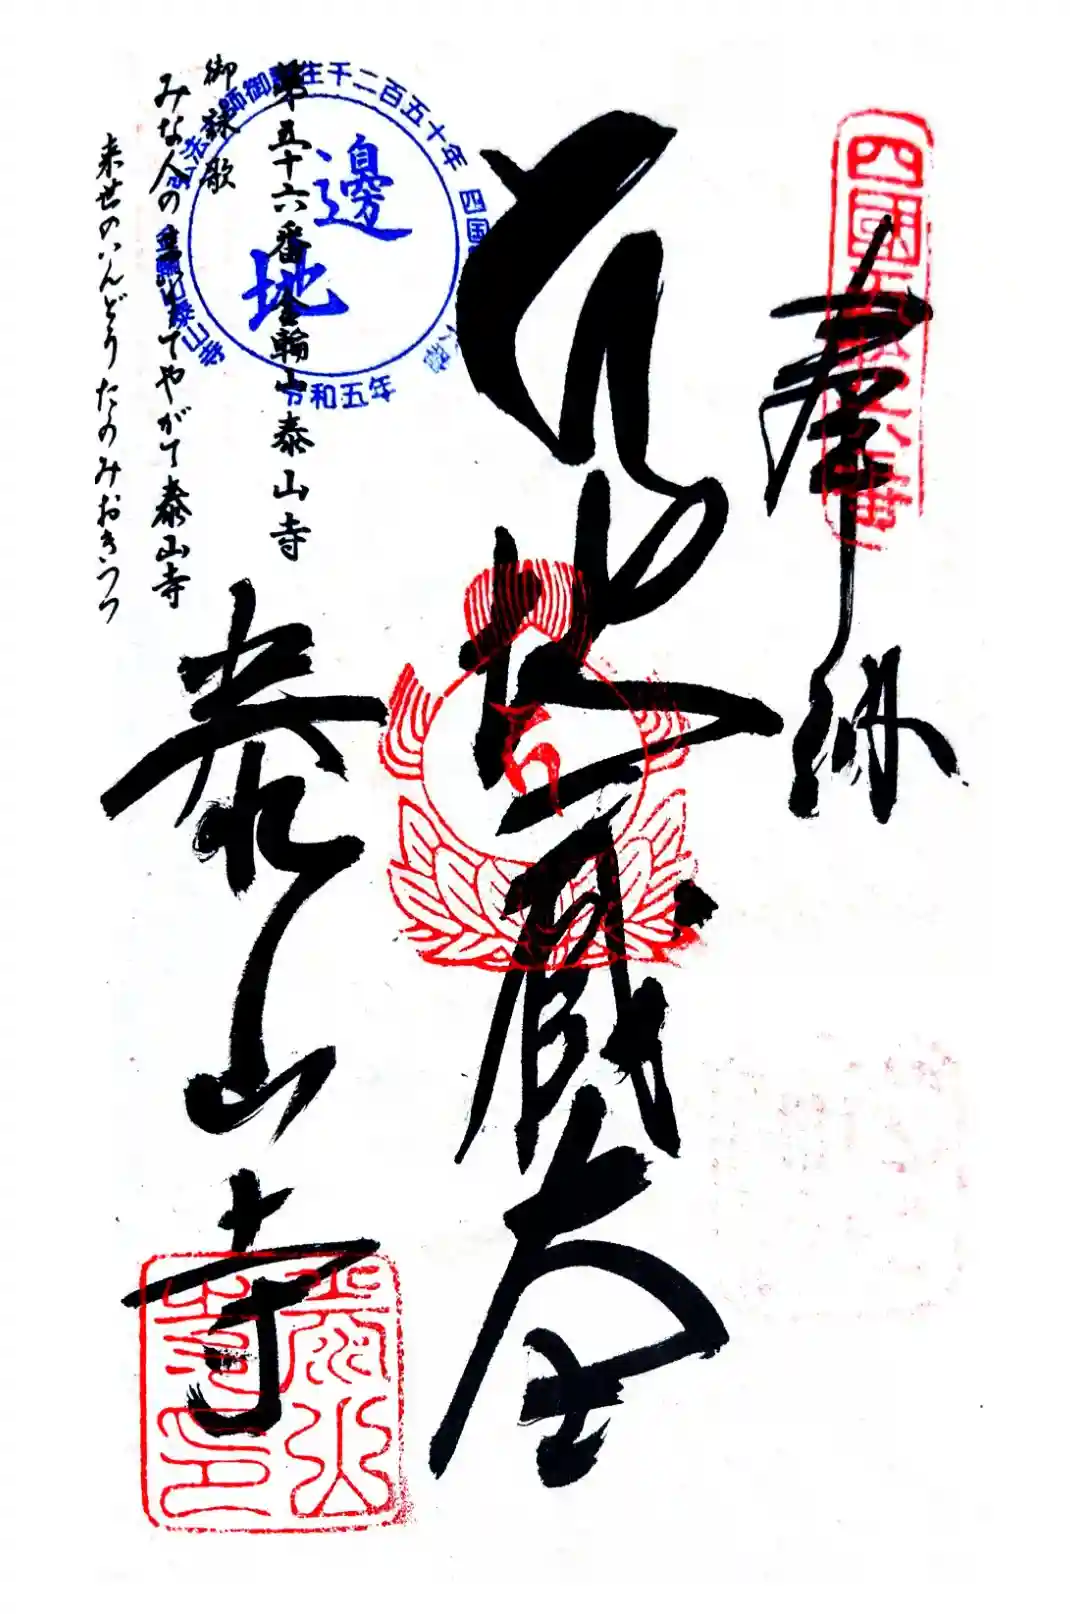 奉納
四国五十六番
地蔵大士
泰山寺
第五十六番 金輪山 泰山寺
御詠歌
みな人のまいりてやがて泰山寺
来世のいんどうたのみおきつつ
弘法大師御誕生千二百五十年
四国
邊地
金輪山泰山寺
令和五年